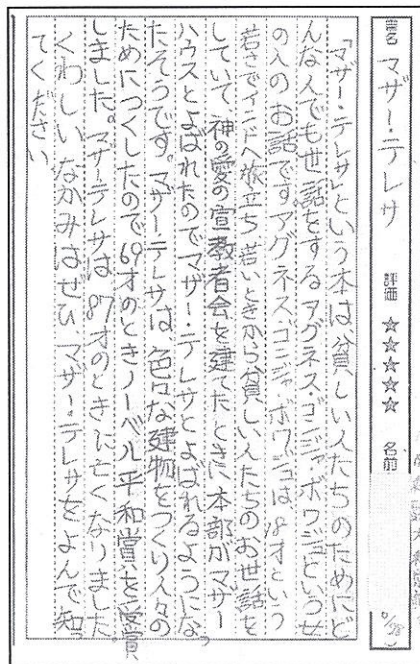 書名 マザー・テレサ 評価 ☆☆☆☆☆ 名前
「マザー・テレサ」という本は、貧しい人たちのためにど
んな人でも世話をするアグネス・ゴンジャボワジュというせ
の人のお話です。アグネス・ゴンジャボワジュは18才という
若さでインドへ旅立ち若いときから貧しい人たちのお世話を
していて、神の愛の宣教者会を建てたときに本部がマザー
ハウスとよばれたのでマザー・テレサとよばれるようになっ
たそうです。マザー・テレサは、色々な建物をつくり人々の
ためにつくしたので69才のときノーベル平和賞を受賞
しました。マザー・テレサは87才のときに亡くなりました。
くわしいなかみはぜひマザー・テレサをよんで知っ
てください